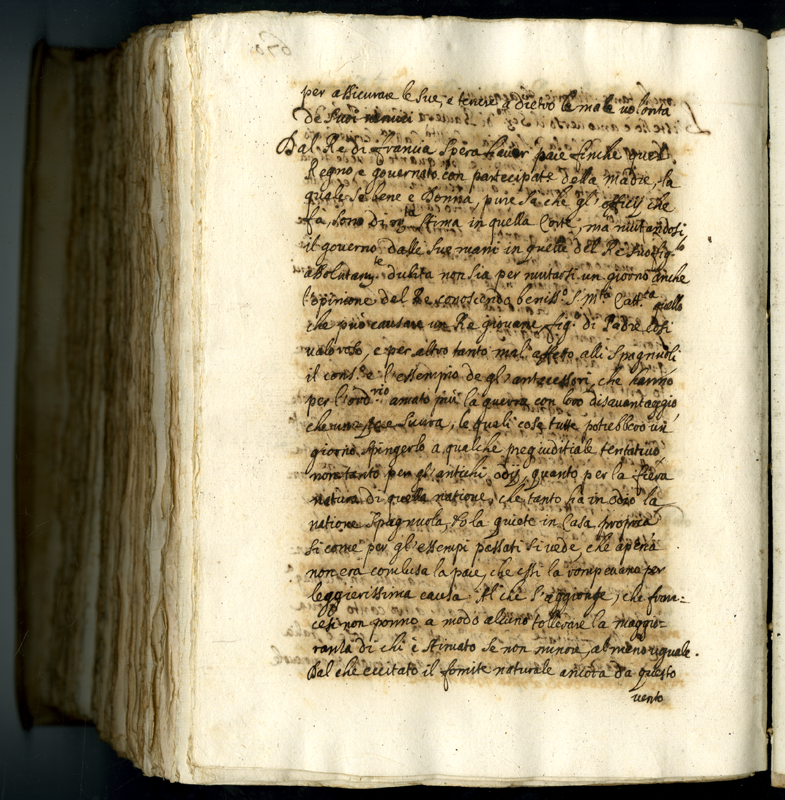 per assicurar le sue, e tenere a dietro la mala volontà
de suoi nemici
Dal Re di francia spera haver pace finche quel
Regno, e governato con partecipat.e della madre, la
quale se bene e Donna, pure sa che gl'officij che
fà, sono di m.ta stima in quella Corte, mà mutandosi
il governo dalle sue mani in quelle del Re suo fig.lo
absolutam.te dubita non sia per mutarsi un giorno anche
l'opinione del Re conoscendo beniss.o S. M.tà Catt.ca quello
che può causare un Re giovane fig.o di Padre così
valoroso, e per altro tanto mal'affetto alli Spagnuoli
il cons.o e l'essempio de gl'antecessori, che hanno
per l'ord.rio amato più la guerra con loro disavantaggio
che una pace sicura, le quali cose tutte potrebbero un
giorno spingerlo a qualche pregiuditiale tentativo
non tanto per gl'antichi odij, quanto per la fiera
natura di quella natione, che tanto ha in odio la
natione Spagnuola, e la quiete in Casa propria
si come per gl'essempi passati si vede, che apena
non era conclusa la pace, che essi la rompevano per
leggierissima causa. Al che s'aggionge, che fran=
cesi non ponno a modo alcuno tollerare la maggio=
ranza di chi è stimato se non minore, almeno uguale.
Dal che eccitato il fomite naturale ancora da questo
vento